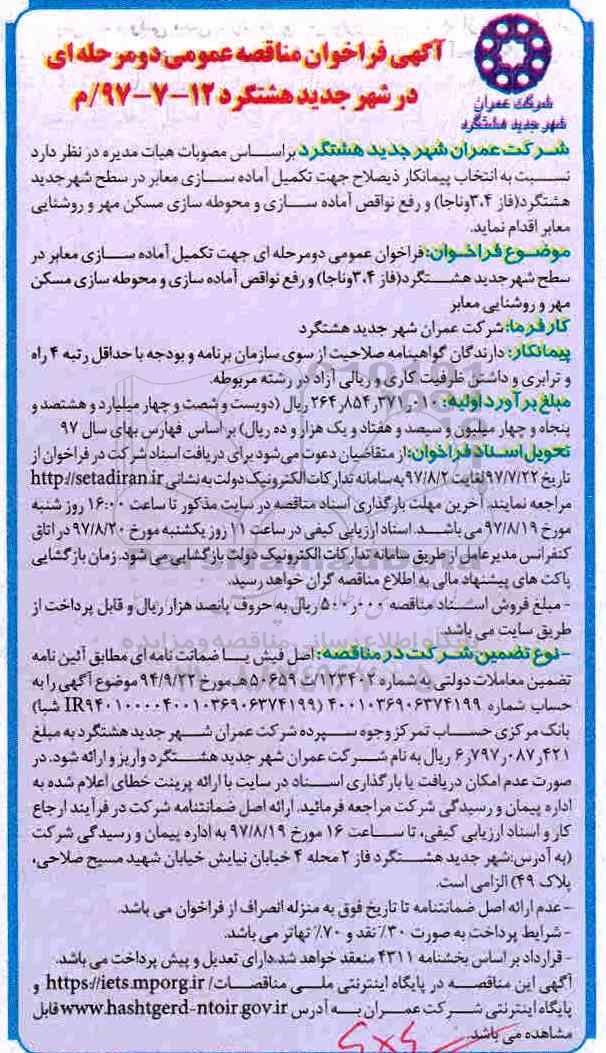 آگهی فراخوان مناقصه عمومی دومرحله ای
در شهر جدید هشتگرد ۱۲-۷-۹۷/م
شرکت عمران
شهر جدید هشتگرد
شرکت عمران شهر جدید هشتگرد براساس مصوبات هیات مدیره در نظر دارد
نسبت به انتخاب پیمانکار ذیصلاح جهت تکمیل آماده سازی معابر در سطح شهر جدید
هشتگرد(فاز ۳،۴وناجا) و رفع نواقص آماده سازی و محوطه سازی مسکن مهر و روشنایی
معابر اقدام نماید.
موضوع فراخوان: فراخوان عمومی دومرحله ای جهت تکمیل آماده سازی معابر در
سطح شهر جدید هشتگرد(فاز ۳،۴وناجا) و رفع نواقص آماده سازی و محوطه سازی مسکن
مهر و روشنایی معابر
کارفرما: شرکت عمران شهر جدید هشتگرد
پیمانکار: دارندگان گواهینامه صلاحیت از سوی سازمان برنامه و بودجه با حداقل رتبه ۴ راه
و ترابری و داشتن ظرفیت کاری و ریالی آزاد در رشته مربوطه.
مبلغ برآورد اولیه: ۲۶۴٫۸۵۴٫۳۷۱٫۰۱۰ ریال (دویست و شصت و چهار میلیارد و هشتصد و
پنجاه و چهار میلیون و سیصد و هفتاد و یک هزار و ده ریال) بر اساس فهارس بهای سال ۹۷
تحویل اسناد فراخوان: از متقاضیان دعوت می شود برای دریافت اسناد شرکت در فراخوان از
تاریخ ۹۷/۷/۲۲ لغایت ۹۷/۸/۲ به سامانه تدارکات الکترونیک دولت به نشانی http://setadiran.ir
مراجعه نمایند. آخرین مهلت بارگذاری اسناد مناقصه در سایت مذکور تا ساعت ۱۶:۰۰ روز شنبه
مورخ ۹۷/۸/۱۹ می باشد. اسناد ارزیابی کیفی در ساعت ۱۱ روز یکشنبه مورخ ۹۷/۸/۲۰ در اتاق
کنفرانس مدیرعامل از طریق سامانه تدارکات الکترونیک دولت بازگشایی می شود. زمان بازگشایی
پاکت های پیشنهاد مالی به اطلاع مناقصه گران خواهد رسید.
- مبلغ فروش اسناد مناقصه ۵۰۰٫۰۰۰ ریال به حروف پانصد هزار ریال و قابل پرداخت از
طریق سایت می باشد.
- نوع تضمین شرکت در مناقصه: اصل فیش یا ضمانت نامه ای مطابق آئین نامه
تضمین معاملات دولتی به شماره ۱۲۳۴۰۲/ت ۵۰۶۵۹ هـ مورخ ۹۴/۹/۲۲ موضوع آگهی را به
حساب شماره ۴۰۰۱۰۳۶۹۰۶۳۷۴۱۹۹ (IR۹۴۰۱۰۰۰۰۴۰۰۱۰۳۶۹۰۶۳۷۴۱۹۹ شبا)
بانک مرکزی حساب تمرکز وجوه سپرده شرکت عمران شهر جدید هشتگرد به مبلغ
۶٫۷۹۷٫۰۸۷٫۴۲۱ ریال به نام شرکت عمران شهر جدید هشتگرد واریز و ارائه شود. در
صورت عدم امکان دریافت یا بارگذاری اسناد در سایت با ارائه پرینت خطای اعلام شده به
اداره پیمان و رسیدگی شرکت مراجعه فرمائید. ارائه اصل ضمانتنامه شرکت در فرآیند ارجاع
کار و اسناد ارزیابی کیفی، تا ساعت ۱۶ مورخ ۹۷/۸/۱۹ به اداره پیمان و رسیدگی شرکت
(به آدرس:شهر جدید هشتگرد فاز ۲ محله ۴ خیابان نیایش خیابان شهید مسیح صلاحی،
پلاک ۴۹) الزامی است.
- عدم ارائه اصل ضمانتنامه تا تاریخ فوق به منزله انصراف از فراخوان می باشد.
- شرایط پرداخت به صورت ۳۰٪ نقد و ۷۰٪ تهاتر می باشد.
- قرارداد بر اساس بخشنامه ۴۳۱۱ منعقد خواهد شد.دارای تعدیل و پیش پرداخت می باشد.
آگهی این مناقصه در پایگاه اینترنتی ملی مناقصات/ https://iets.mporg.ir و
پایگاه اینترنتی شرکت عمران به آدرس www.hashtgerd-ntoir.gov.ir قابل
مشاهده می باشد.